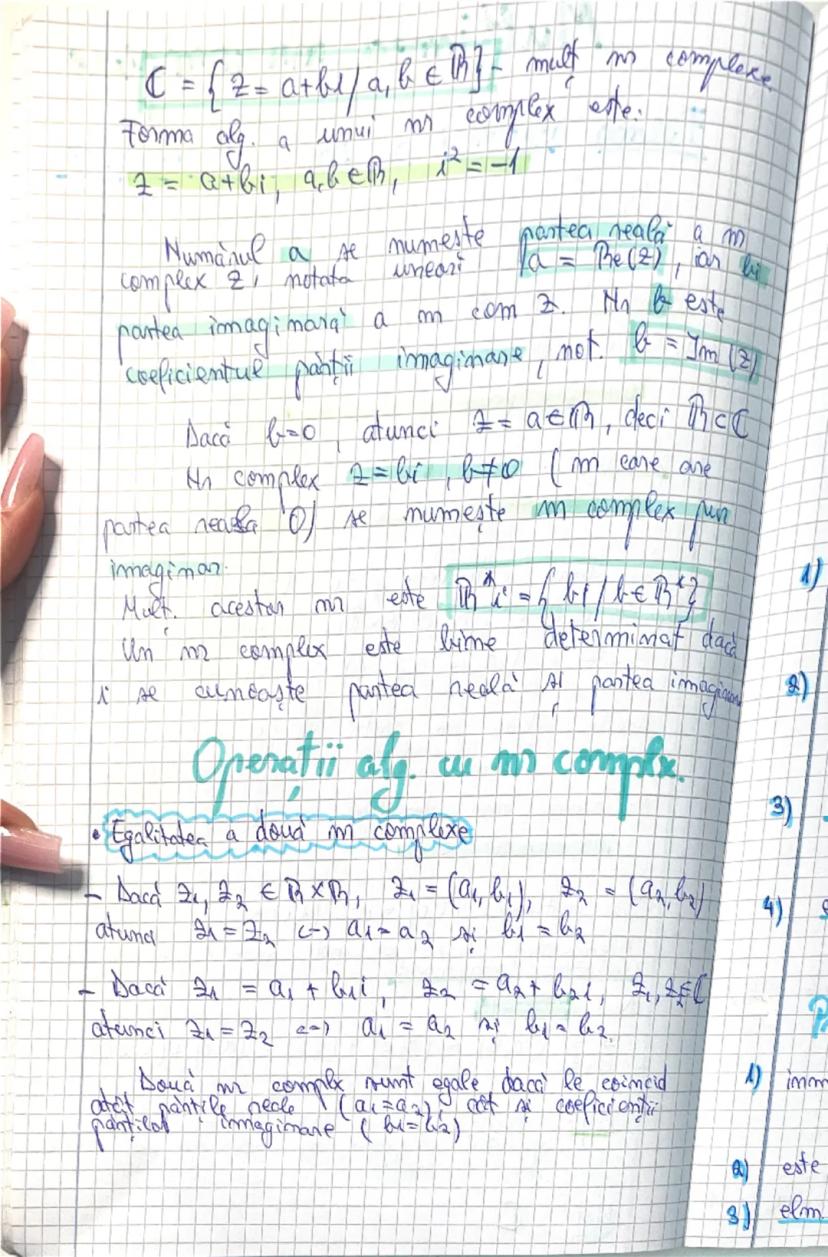 ℂ = {z = a+bi / a, b ∈ ℝ} - mulț nr complexe
Forma alg. a unui nr complex este:
z = a+bi, a,b ∈ ℝ, i² = -1
Numărul a se numește partea reală a nr
complex z, notata uneori a = Re(z), iar bi
partea imaginară a nr com z. Nr b este
coeficientul părții imaginare, not. b = Im(z)
Dacă b=0, atunci z = a ∈ ℝ, deci ℝ ⊂ ℂ
Nr complex z = bi, b≠0 (nr care are
partea reala 0) se numește nr complex pur
imaginar.
Mulț. acestor nr este ℝ*i = {bi / b ∈ ℝ*}
Un nr complex este bine determinat dacă
i se cunoaște partea reală și partea imaginar
Operații alg. cu nr complx.
• Egalitatea a două nr complexe
- Dacă z₁, z₂ ∈ ℝ×ℝ, z₁ = (a₁, b₁), z₂ = (a₂, b₂)
atunci z₁ = z₂ <-> a₁ = a₂ și b₁ = b₂
- Dacă z₁ = a₁ + b₁i, z₂ = a₂ + b₂i, z₁, z₂ ∈ ℂ
atunci z₁ = z₂ <=> a₁ = a₂ și b₁ = b₂.
Două nr complx sunt egale dacă le coincid
atât părțile reale (a₁=a₂), cât și coeficienții
părților imaginare (b₁=b₂)
1)
2)
3)
4)
1) inm
2) este
3) elm.